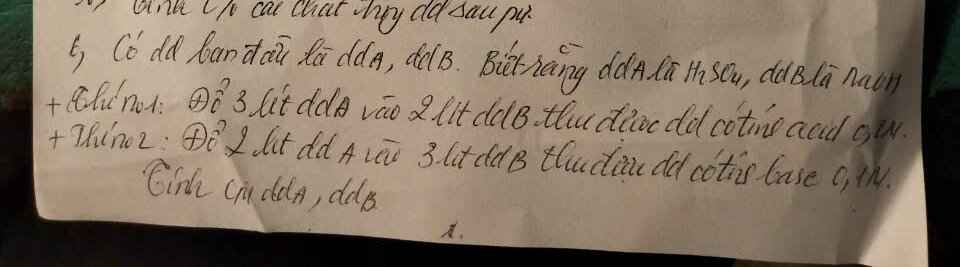 Tính C% các chất trong dd sau pư.
t, Có dd ban đầu là ddA, ddB. Biết rằng ddA là H2SO4, ddB là NaOH
+ Thí no1: Đổ 3 lít ddA vào 2 lít ddB thu được dd có tính acid 0,2N.
+ Thí no2: Đổ 2 lít dd A vào 3 lít ddB thu được dd có tính base 0,1N.
Tính CM ddA, ddB